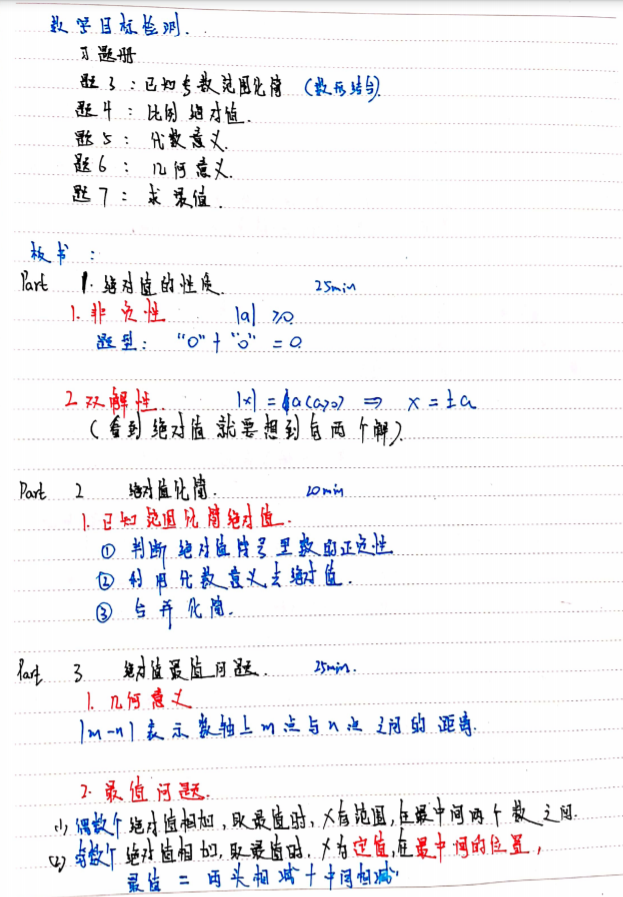 数学目标检测.
习题册
题3：已知参数范围化简（数形结合）
题4：比例绝对值.
题5：代数意义.
题6：几何意义.
题7：求最值.
板书：
Part 1. 绝对值的性质. 25min
1. 非负性 |a| ≥0.
题型："0"+"0"=0.
2. 双解性. |x|=a(a>0) ⇒ x=±a
（看到绝对值就要想到有两个解）.
Part 2 绝对值化简. 20min
1. 已知范围化简绝对值.
① 判断绝对值符号里数的正负性
② 利用代数意义去绝对值.
③ 合并化简.
Part 3 绝对值最值问题. 25min.
1. 几何意义
|m-n|表示数轴上m点与n点之间的距离.
2. 最值问题.
(1) 偶数个绝对值相加,取最值时,x有范围,在最中间两个数之间.
(2) 奇数个绝对值相加,取最值时,x为定值,在最中间的位置,
最值=两头相减+中间相减.